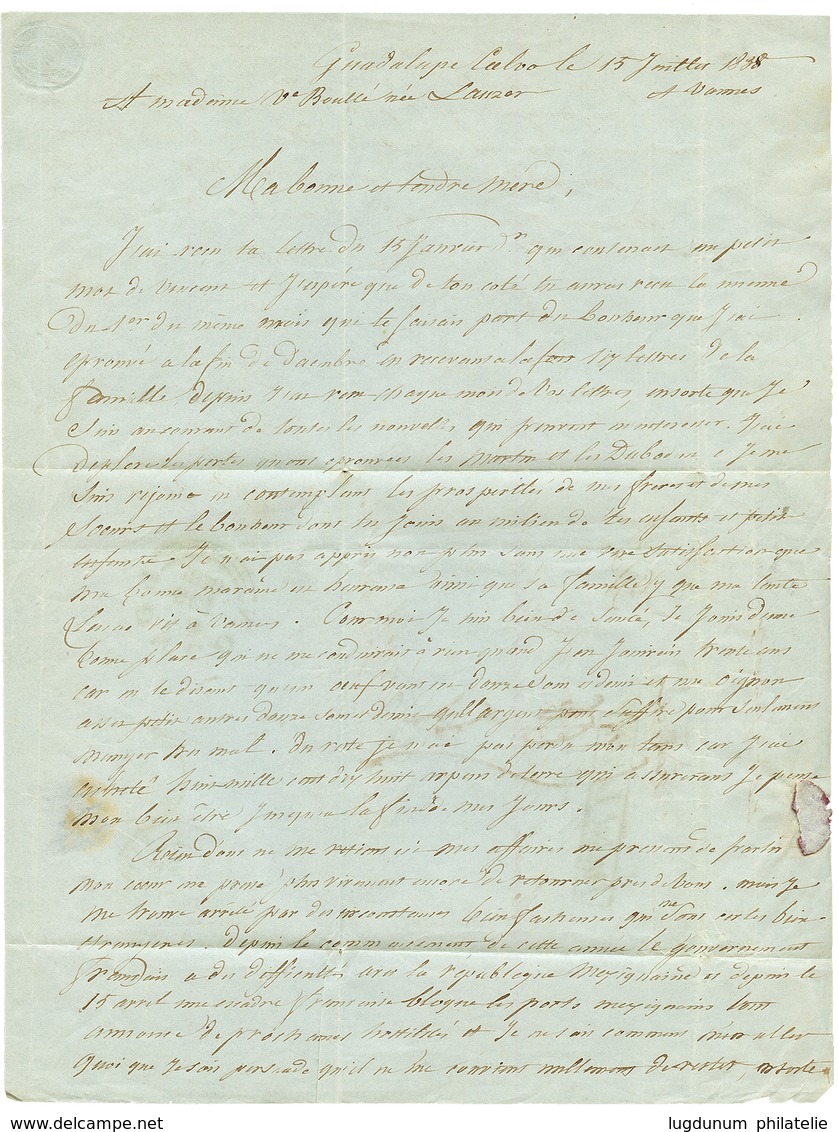 Guadalupe Calvo le 15 Juillet 1838
A madame Ve Boullé née Lauzer A Vannes
Ma bonne et tendre mère,
J'ai recu ta lettre du 15 Janvier dr qui contenait un petit
mot de Vincent et J'espère que de ton coté tu auras recu la mienne
du 1er du même mois qui te faisais part du bonheur que J'ai
eprouvé a la fin de Decembre en recevant a la fois 17 lettres de la
famille depuis J'ai recu chaque mois de vos lettres, ensorte que Je
suis au courant de toutes les nouvelles qui peuvent m'interesser. J'ai
deploré les pertes qu'ont eprouvées les Martin et les Dubod Je me
suis rejoui en contemplant les prosperités de mes freres et de mes
soeurs et le bonheur dont tu Jouis au milieu de tes enfants et petits
enfants. Je n'ai pas appris non plus sans une vive satisfaction que
ma bonne maraine est heureuse ainsi que sa famille y que ma tante
vit à Vannes. Pour moi Je suis bien de santé, Je Jouis d'une
bonne place qui ne me conduirait à rien quand J'en Jouirais trente ans
car en te disant qu'un oeuf vaut ici douze sous et demi et un oignon
assez petit autres douze sous et demi quel argent peut suffire pour seulement
manger tres mal. Du reste je n'ai pas perdu mon tems car J'ai
acheté huit mille cent dix huit arpens de terre qui assureront Je pense
mon bien être Jusqu'a la fin de mes Jours.
Rien donc ne me retient ici mes affaires me pressent de partir
mon coeur me presse plus vivement encore de retourner pres de vous. mais Je
me trouve arrêté par des circonstances bien facheuses qui ne sont certes bien
etrangeres. Depuis le commencement de cette année le gouvernement
Francais a des difficultés avec la république Mexiquaine et depuis le
15 avril une escadre francaise bloque les ports mexiquains tout
annonce de prochaines hostilités et Je ne sais comment m'en aller
quoi que Je sois persuadé qu'il ne me convient nullement de rester, ensorte
www.delcampe.net
lugdunum philatelie